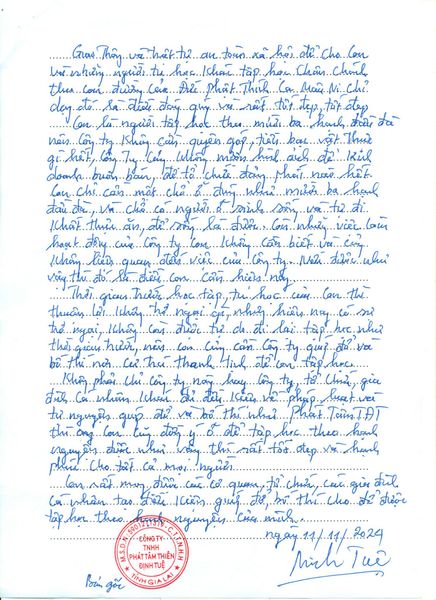 Giao Thông và trật tự an toàn xã hội để cho con
và những người tu học khác tập học chân chính
theo con đường của Đức Phật Thích Ca Mâu Ni chỉ
dạy đó là điều đáng quý và rất tốt đẹp, tốt đẹp
Con là người tập học theo mười ba hạnh đầu đà
nên công ty không cần quyên góp, tiền bạc vật thực
gì hết, công ty cũng không mượn hình ảnh để kinh
doanh buôn bán, để tổ chức đảng phái nào hết.
Con chỉ cần một chỗ ở đúng như mười ba hạnh
đầu đà, và chỗ có người ở sinh sống và tự đi
khất thực ăn, để sống là được. Còn những việc làm
hoạt động của công ty con không cần biết và cũng
không liên quan đến việc của công ty. Nếu được như
vậy thì đó là điều con cần hiện nay
Thời gian trước học tập, tu học của con thì
thuận lợi không trở ngại gì, nhưng hiện nay có sự
trở ngại, không còn được tự do đi lại tập học như
thời gian trước, nên con cũng cần công ty giúp đỡ và
bố thí nơi cư trú thanh tịnh để con tập học
Không phải chỉ công ty này hay công ty, tổ chức, gia
đình cá nhân khác đủ điều kiện về pháp luật và
tự nguyện giúp đỡ và bố thí như Phát Tâm TĐT
thì con cũng đồng ý ở để tập học theo hạnh
nguyện được như vậy thì rất tốt đẹp và hạnh
phúc cho tất cả mọi người
Con rất mong được các cơ quan, tổ chức, các gia đình
cá nhân tạo điều kiện giúp đỡ, bố thí cho để được
tập học theo hạnh nguyện của mình.
ngày 11/11/2024
CÔNG TY
TNHH
PHÁT TÂM THIỀN
ĐỊNH TUỆ
TỈNH GIA LAI
Minh Tuệ
Bản gốc